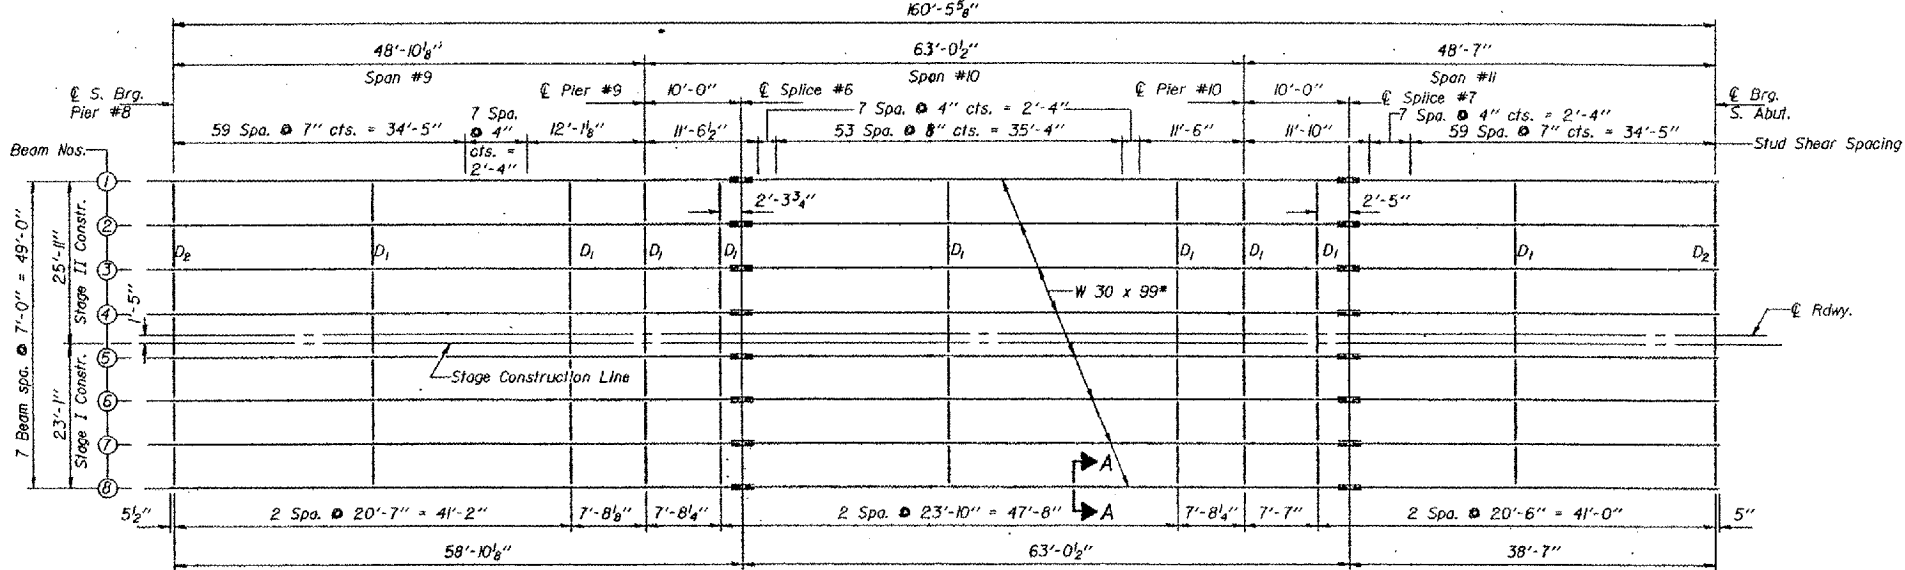 160'-5 5/8"
48'-10 1/8"
63'-0 1/2"
48'-7"
Span #9
Span #10
Span #11
℄ S. Brg.
Pier #8
℄ Pier #9
10'-0"
℄ Splice #6
℄ Pier #10
10'-0"
℄ Splice #7
℄ Brg.
S. Abut.
59 Spa. @ 7" cts. = 34'-5"
7 Spa.
@ 4"
cts. =
2'-4"
12'-1 1/8"
11'-6 1/2"
7 Spa. @ 4" cts. = 2'-4"
53 Spa. @ 8" cts. = 35'-4"
11'-6"
11'-10"
7 Spa. @ 4" cts. = 2'-4"
59 Spa. @ 7" cts. = 34'-5"
Stud Shear Spacing
Beam Nos.
1
2
3
4
5
6
7
8
7 Beam spa. @ 7'-0" = 49'-0"
25'-11"
Stage II Constr.
1'-5"
23'-1"
Stage I Constr.
2'-3 3/4"
2'-5"
D2
D1
D1
D1
D1
D1
D1
D1
D1
D1
D2
W 30 x 99#
℄ Rdwy.
Stage Construction Line
A
A
5 1/2"
2 Spa. @ 20'-7" = 41'-2"
7'-8 1/8"
7'-8 1/4"
2 Spa. @ 23'-10" = 47'-8"
7'-8 1/4"
7'-7"
2 Spa. @ 20'-6" = 41'-0"
5"
58'-10 1/8"
63'-0 1/2"
38'-7"